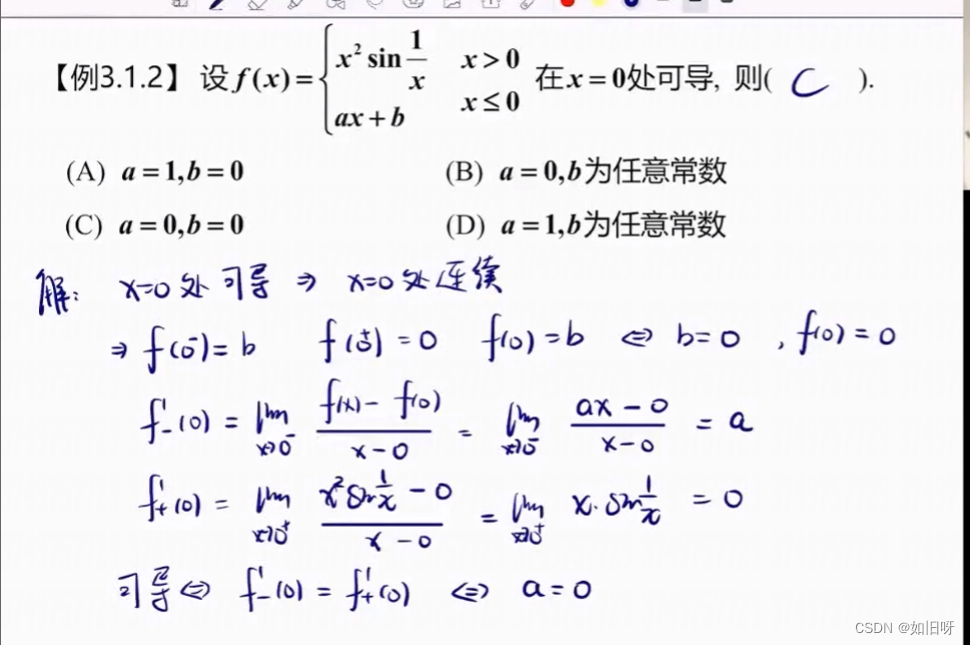 【例3.1.2】 设 f(x)= { x² sin 1/x x>0 在x=0处可导, 则( C ).
ax+b x≤0
(A) a=1,b=0 (B) a=0,b为任意常数
(C) a=0,b=0 (D) a=1,b为任意常数
解: x=0 处 可导 ⇒ x=0 处 连续
⇒ f(0⁻)=b f(0⁺)=0 f(0)=b ⇔ b=0 , f(0)=0
f'₋(0) = lim x→0⁻ (f(x)-f(0))/(x-0) = lim x→0⁻ (ax-0)/(x-0) = a
f'₊(0) = lim x→0⁺ (x² sin 1/x - 0)/(x-0) = lim x→0⁺ x·sin 1/x = 0
可导 ⇔ f'₋(0) = f'₊(0) ⇔ a=0
CSDN @如旧呀